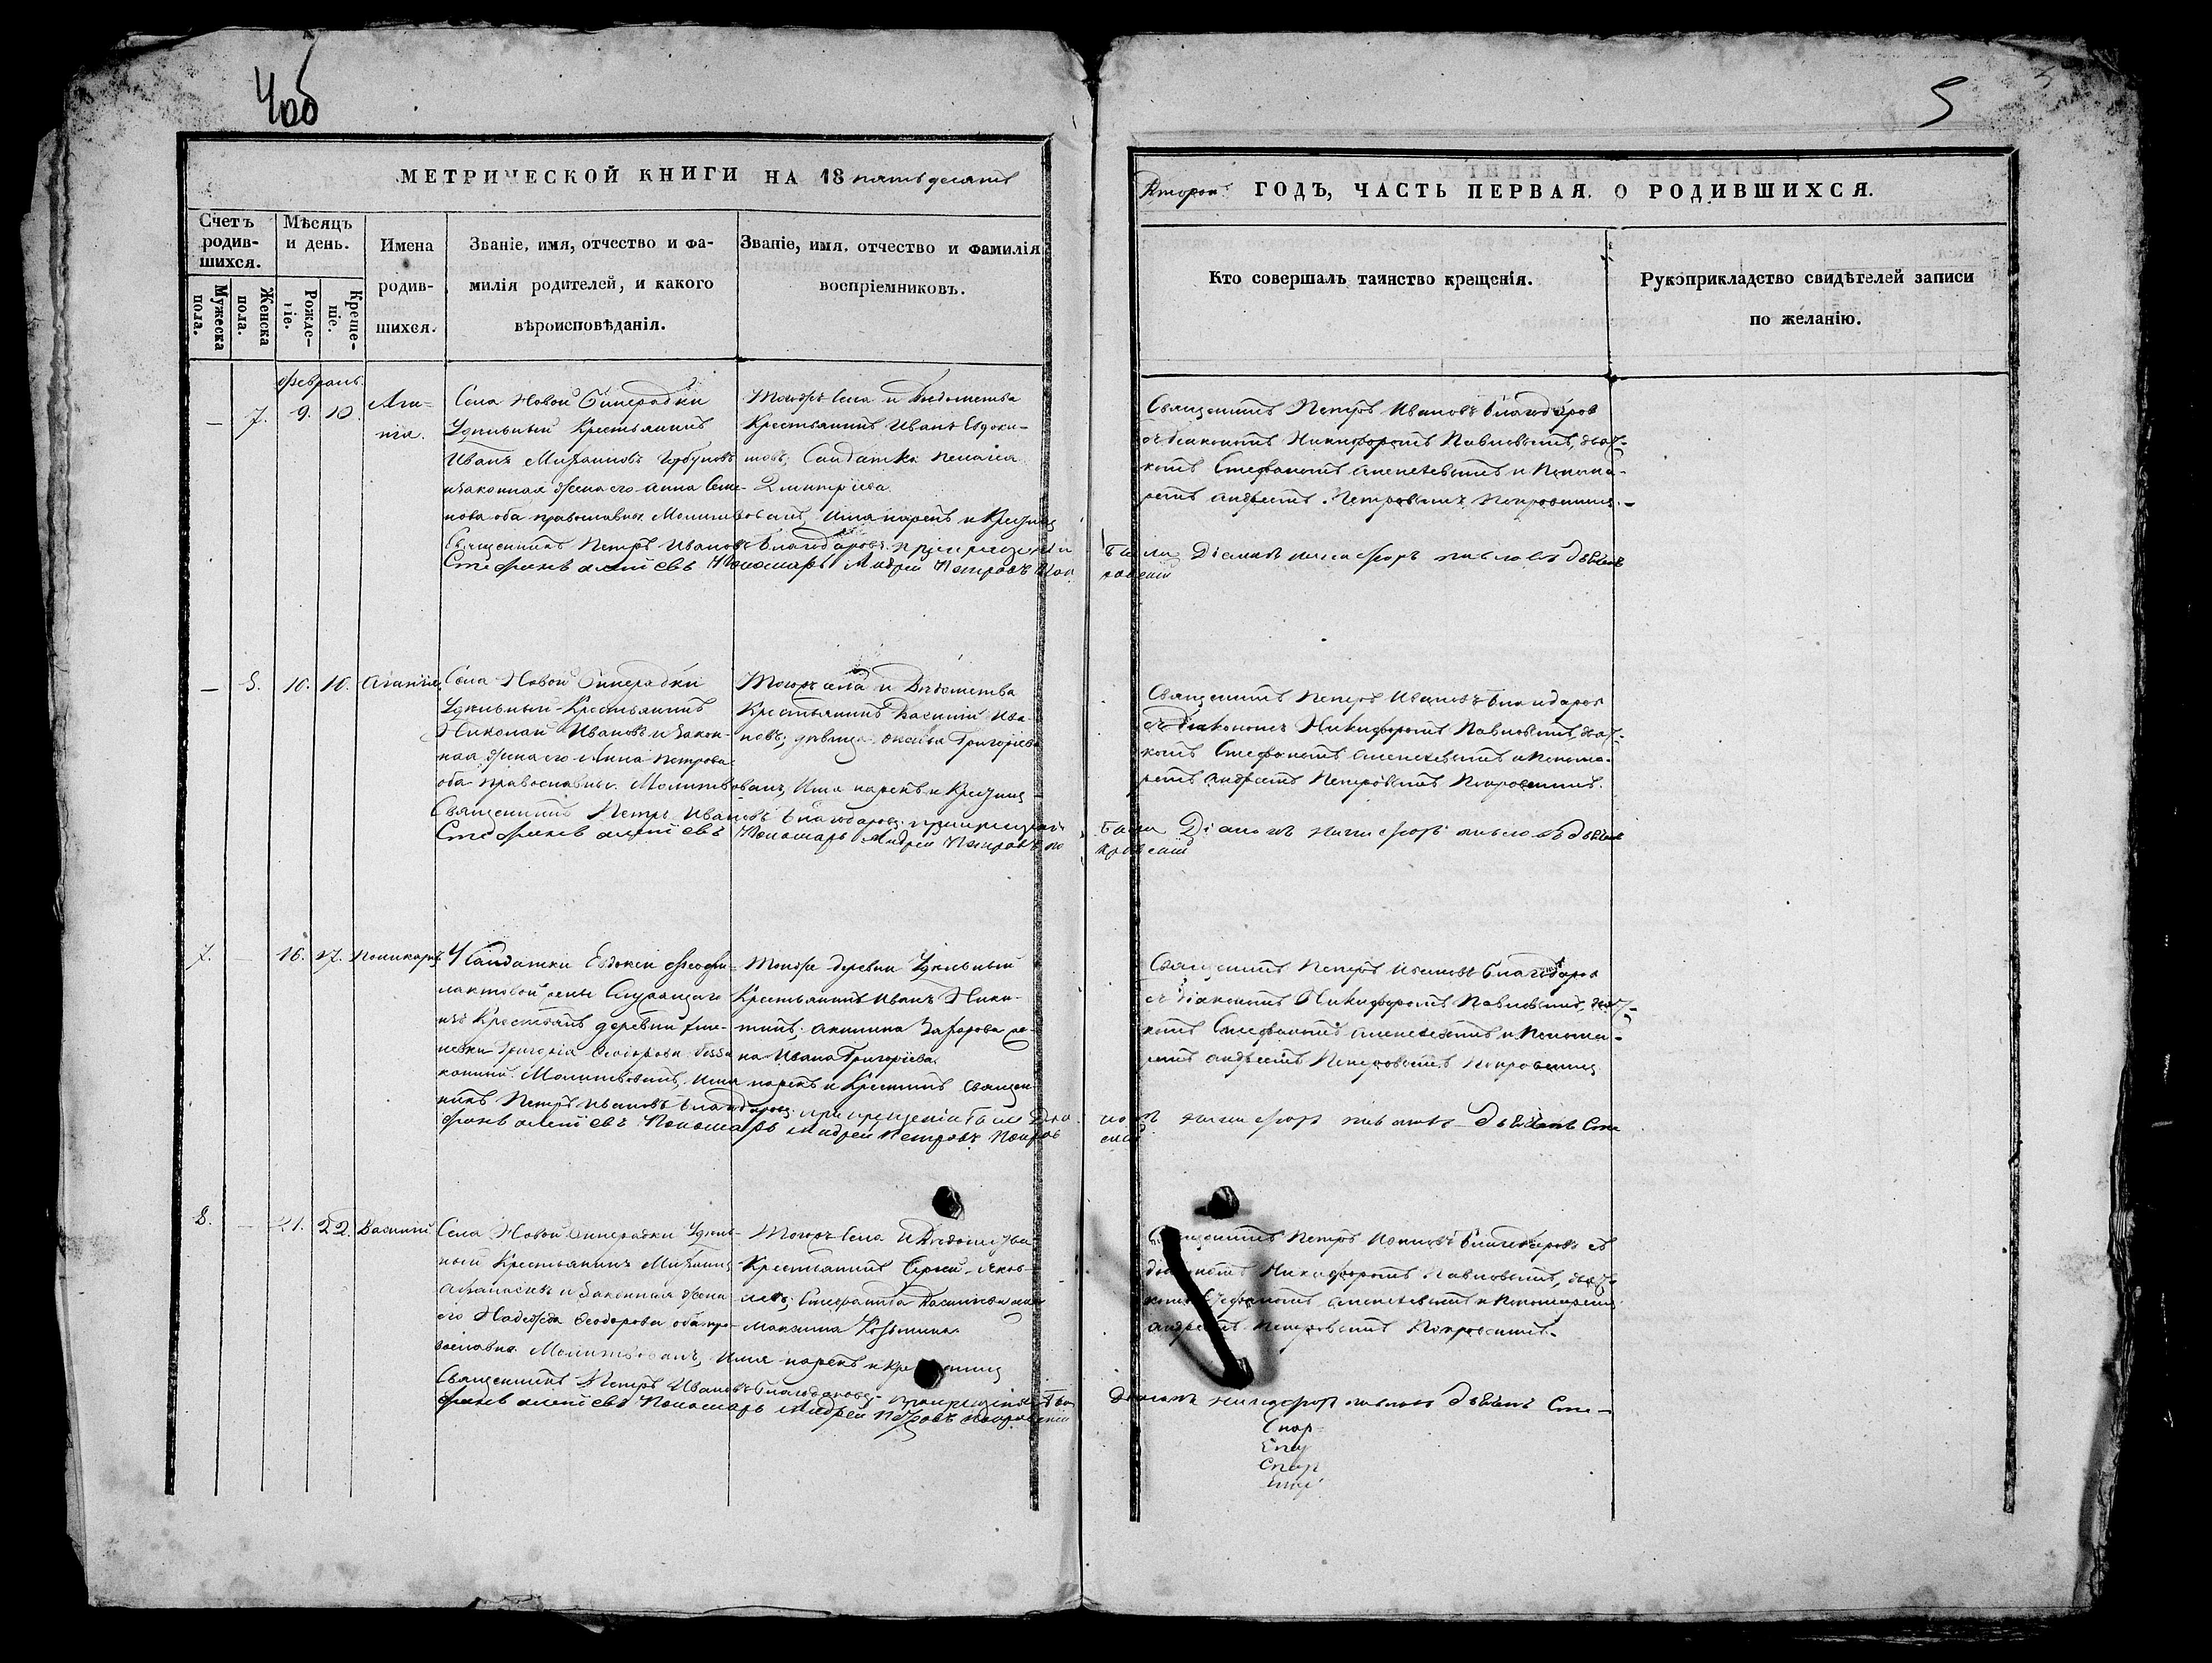 4об
5
МЕТРИЧЕСКОЙ КНИГИ НА 18 пятьдесятъ
Второй ГОДЪ, ЧАСТЬ ПЕРВАЯ. О РОДИВШИХСЯ.
Счетъ родив-шихся.
Мужеска пола.
Женска пола.
Мѣсяцъ и день.
Рожде-ніе.
Креще-ніе.
Имена
родив-
шихся.
Званіе, имя, отчество и фа-
милія родителей, и какого
вѣроисповѣданія.
Званіе, имя, отчество и фамилія
воспріемниковъ.
Кто совершалъ таинство крещенія.
Рукоприкладство свидѣтелей записи
по желанію.
Февраль.
— 7. 9. 10.
Села Новой Бинерадки
Удѣльный Крестьянинъ
Иванъ Михаиловъ Горбуновъ
и законная жена его Анна Семе-
нова оба православные. Молитвовалъ, Имя нарекъ и Крестилъ
Священникъ Петръ Ивановъ Благодаровъ. при крещеніи
Стефанъ Алексіевъ Пономарь Андрей Петровъ
Тогожъ Села и Вѣдомства
Крестьянинъ Иванъ Евдоки-
мовъ; Солдатка Пелагея
Димитріева.
Священникъ Петръ Ивановъ Благодаров
съ діакономъ Никифоромъ Павловымъ, дьяч-
комъ Стефаномъ Алексеевымъ и Понома-
ремъ Андреемъ Петровымъ Покровскимъ.
Были Діаконъ Никифоръ Павловъ дьячекъ
— 8. 10. 10.
Села Новой Бинерадки
Удѣльный Крестьянинъ
Николай Ивановъ и закон-
ная жена его Анна Петрова
оба православные. Молитвовалъ, Имя нарекъ и Крестилъ
Священникъ Петръ Ивановъ Благодаровъ. при крещеніи
Стефанъ Алексіевъ Пономарь Андрей Петровъ По
Тогожъ села и Вѣдомства
Крестьянинъ Василій Ива-
новъ; дѣвица Григорьева
Священникъ Петръ Ивановъ Благодаров
съ Діакономъ Никифоромъ Павловымъ, дьяч-
комъ Стефаномъ Алексеевымъ и Понома-
ремъ Андреемъ Петровымъ Покровскимъ.
Были Діаконъ Никифоръ Павловъ дьячекъ
кровскій
7. — 16. 17. Поликарпъ
У Солдатки Евдокеи Феофи-
лактовой жены Служащаго
изъ Крестьянъ деревни
Григорія Феодорова
Молитвовалъ, Имя нарекъ и Крестилъ Священ-
никъ Петръ Ивановъ Благодаровъ. при крещеніи были Діа
фанъ Алексіевъ Пономарь Андрей Петровъ Покров
Тойже деревни Удѣльный
Крестьянинъ Иванъ Ники-
тинъ; Акилина Захарова же-
на Ивана Григорьева.
Священникъ Петръ Ивановъ Благодаров
съ діакономъ Никифоромъ Павловымъ, дьяч-
комъ Стефаномъ Алексеевымъ и Понома-
ремъ Андреемъ Петровымъ Покровскимъ
конъ Никифоръ Павловъ дьячекъ Сте
скій
8. — 21. 22. Василій
Села Новой Бинерадки Удѣль-
ный Крестьянинъ Михаилъ
Афанасьевъ и Законная жена
его Надежда Феодорова оба пра-
вославные. Молитвовалъ, Имя нарекъ и Крестилъ
Священникъ Петръ Ивановъ Благодаровъ. при крещеніи Бы
фанъ Алексіевъ Пономарь Андрей Петровъ Покровскій
Тогожъ Села и Вѣдомства
Крестьянинъ Сергей Яков-
левъ; Стефанида Васильева жена
Максима Козьмина.
Священникъ Петръ Ивановъ Благодаровъ съ
діакономъ Никифоромъ Павловымъ, дьяч-
комъ Стефаномъ Алексеевымъ и Пономаремъ
Андреемъ Петровымъ Покровскимъ.
Діаконъ Никифоръ Павловъ дьячекъ Сте-